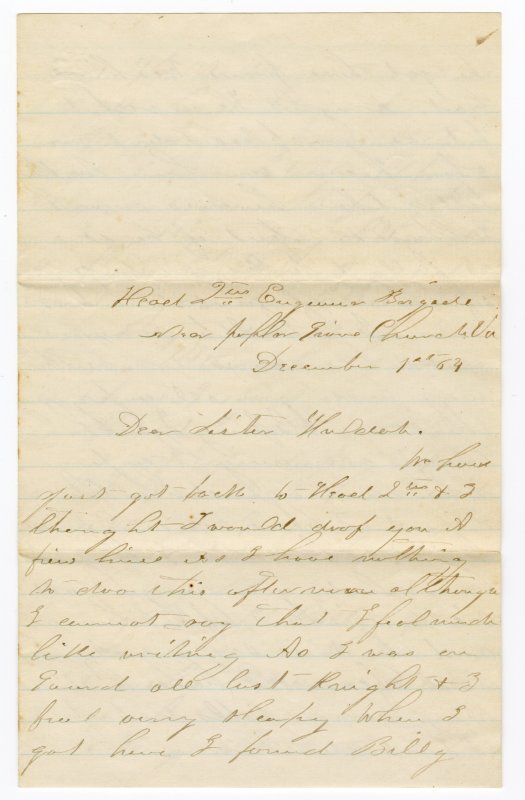 Head 2trs Enginear Brigade
Near poplar Grove Church Va
December 1st 64
Dear Sister Huldah.
We have
just got back to Head 2trs & I
thought I would drop you A
few lines As I have nothing
to doo this afternoon although
I cannot say that I feel much
like writing As I was on
Gaurd all last Knight & I
feel very Sleapy When I
got here I found Billy